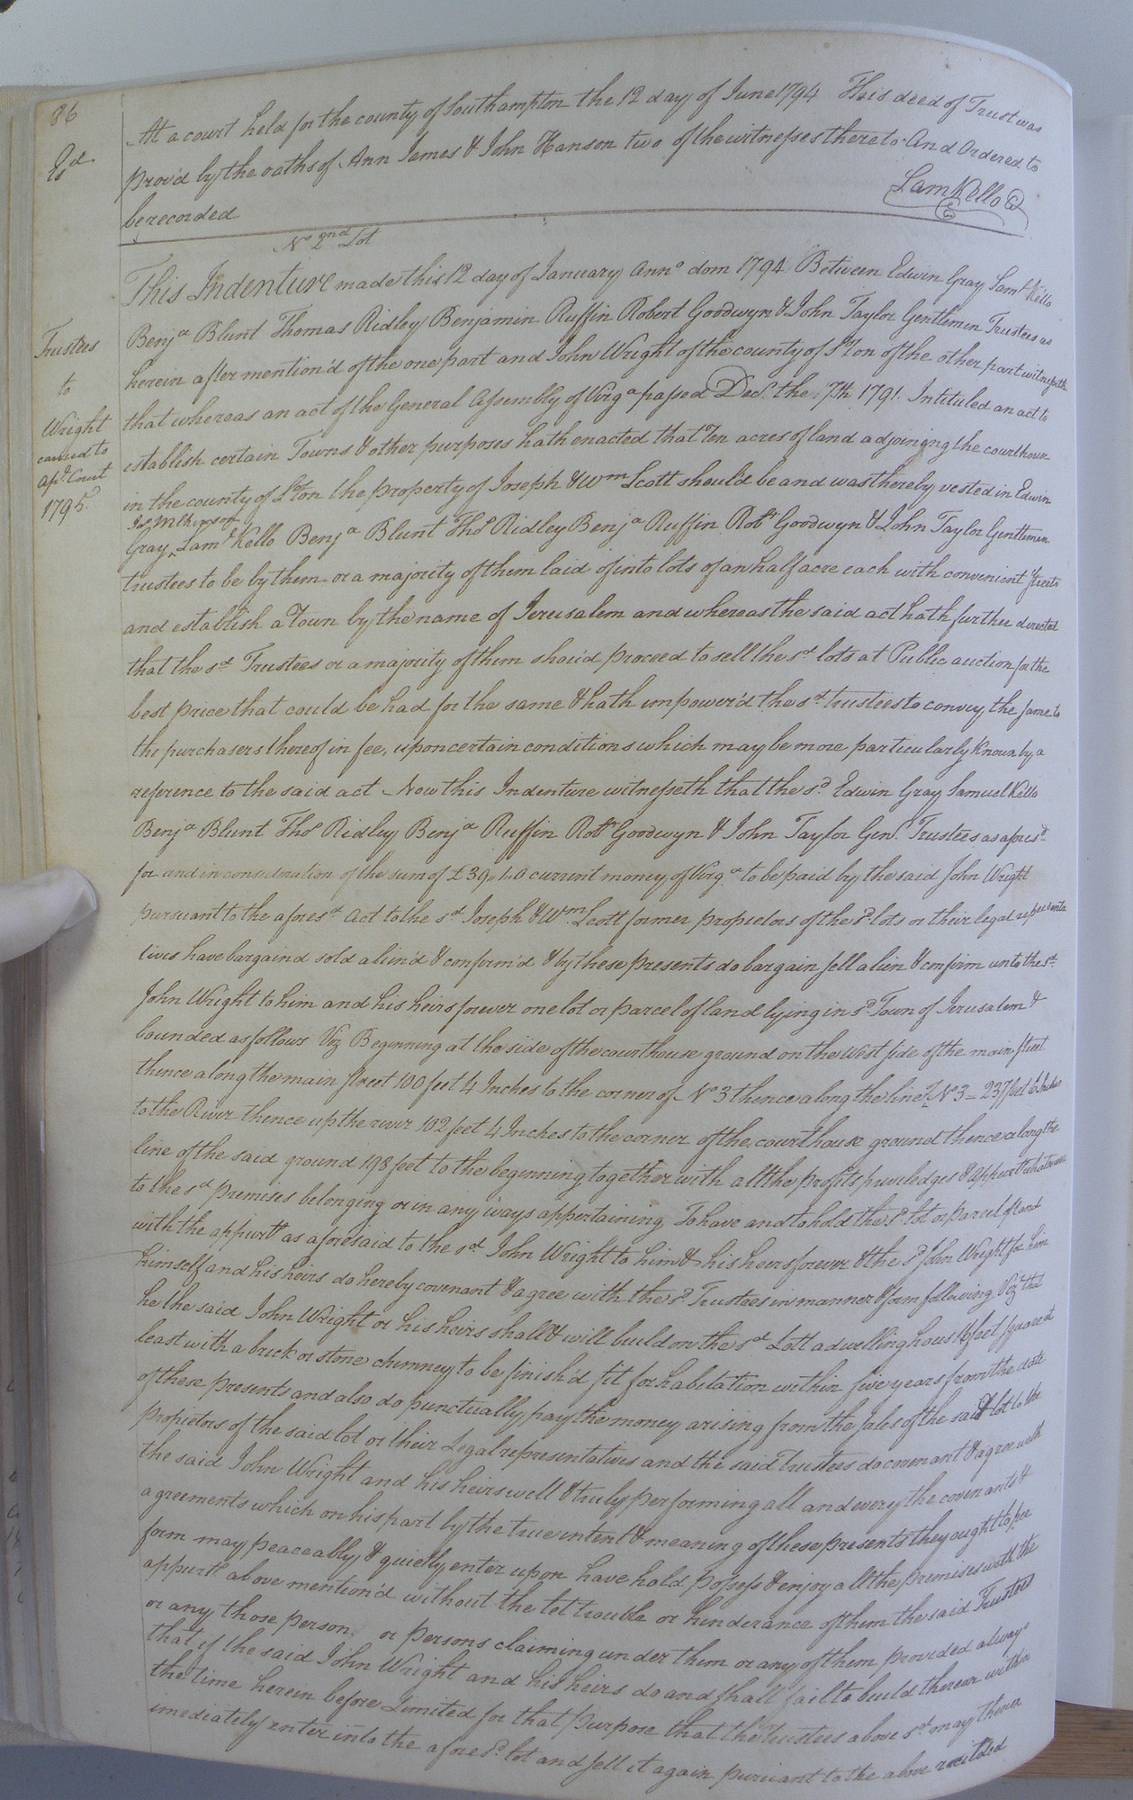 86
At a court held for the county of Southampton the 12 day of June 1794 This deed of Trust was
Exd
prov'd by the oaths of Ann James & John Hanson two of the witnesses thereto And Ordered to
be recorded
Saml Kello
No 2nd Lot
This Indenture made this 12 day of January Anno dom 1794 Between Edwin Gray Saml Kello
Trustees
to
Wright
carried to
1795
Benja Blunt Thomas Ridley Benjamin Ruffin Robert Goodwyn & John Taylor Gentlemen Trustees as
herein after mention'd of the one part and John Wright of the county of S'ton of the other part witnesseth
that whereas an act of the General Assembly of Virga passed Decr the 7th 1791 Intituled an act to
establish certain Towns & other purposes hath enacted that Ten acres of land adjoinjng the courthouse
in the county of S'ton the property of Joseph & Wm Scott should be and was thereby vested in Edwin
Jos Wilkinson
Gray ^ Saml Kello Benja Blunt Thos Ridley Benja Ruffin Robt Goodwyn & John Taylor Gentlemen
trustees to be by them or a majority of them laid of into lots of an half acre each with convenient streets
and establish a Town by the name of Jerusalem and whereas the said act hath further directed
that the sd Trustees or a majority of them shou'd proceed to sell the sd lots at Public auction for the
best price that could be had for the same & hath impower'd the sd trustees to convey the same to
the purchasers thereof in fee, upon certain conditions which may be more particularly known by a
refrence to the said act Now this Indenture witnesseth that the sd Edwin Gray Samuel Kello
Benja Blunt Thos Ridley Benja Ruffin Robt Goodwyn & John Taylor Gent Trustees as aforesd
for and in consideration of the sum of £39. current money of Virga to be paid by the said John Wright
pursuant to the aforesd act to the sd Joseph & Wm Scott former propietors of the sd lots or their legal representa
tives have bargaind sold alien'd & confirm'd & by these presents do bargain sell alien & confirm unto the sd
John Wright to him and his heirs forever one lot or parcel of land lying in sd Town of Jerusalem &
bounded as follows Viz Beginning at the side of the courthouse ground on the West side of the main street
thence along the main street 100 feet 4 Inches to the corner of No 3 thence along the line of No 3 - 237 feet 6 Inches
to the River thence up the river 102 feet 4 Inches to the corner of the courthouse ground thence along the
line of the said ground 198 feet to the beginning together with all the profits priviledges & appurts whatsoever
to the sd premises belonging or in any ways appertaining To have and to hold the sd lot or parcel of land
with the appurts as aforesaid to the sd John Wright to him & his heirs forever & the sd John Wright for him
himself and his heirs do hereby covenant & agree with the sd Trustees in manner & form following Viz that
he the said John Wright or his heirs shall & will build on the sd Lott a dwelling house 16 feet square at
least with a brick or stone chimney to be finish'd fit for habitation within five years from the date
of these presents and also do punctually pay the money arising from the sales of the said lot to the
propietors of the said lot or their Legal representatives and the said Trustees do covenant & agree with
the said John Wright and his heirs well & truly performing all and every the covenants &
agreements which on his part by the true intent & meaning of these presents they ought to per
form may peaceably & quietly enter upon have hold possess & enjoy all the premises with the
appurts above mention'd without the let trouble or hinderance of them the said Trustees
or any those person or persons claiming under them or any of them provided always
that if the said John Wright and his heirs do and shall fail to build thereon within
the time herein before Limited for that purpose that the Trustees above sd may thereon
imediately enter into the aforesd lot and sell it again pursuant to the above recited